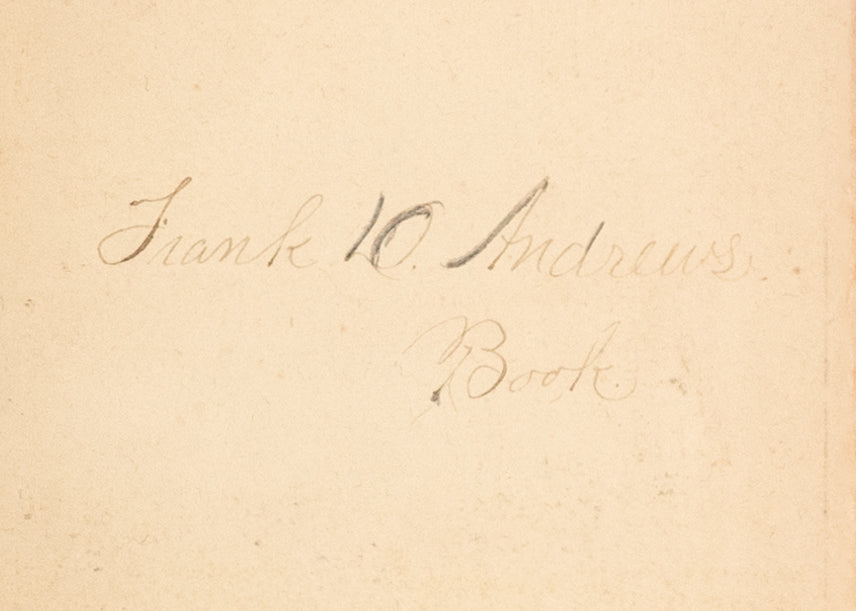 Frank D. Andrews.
Book.